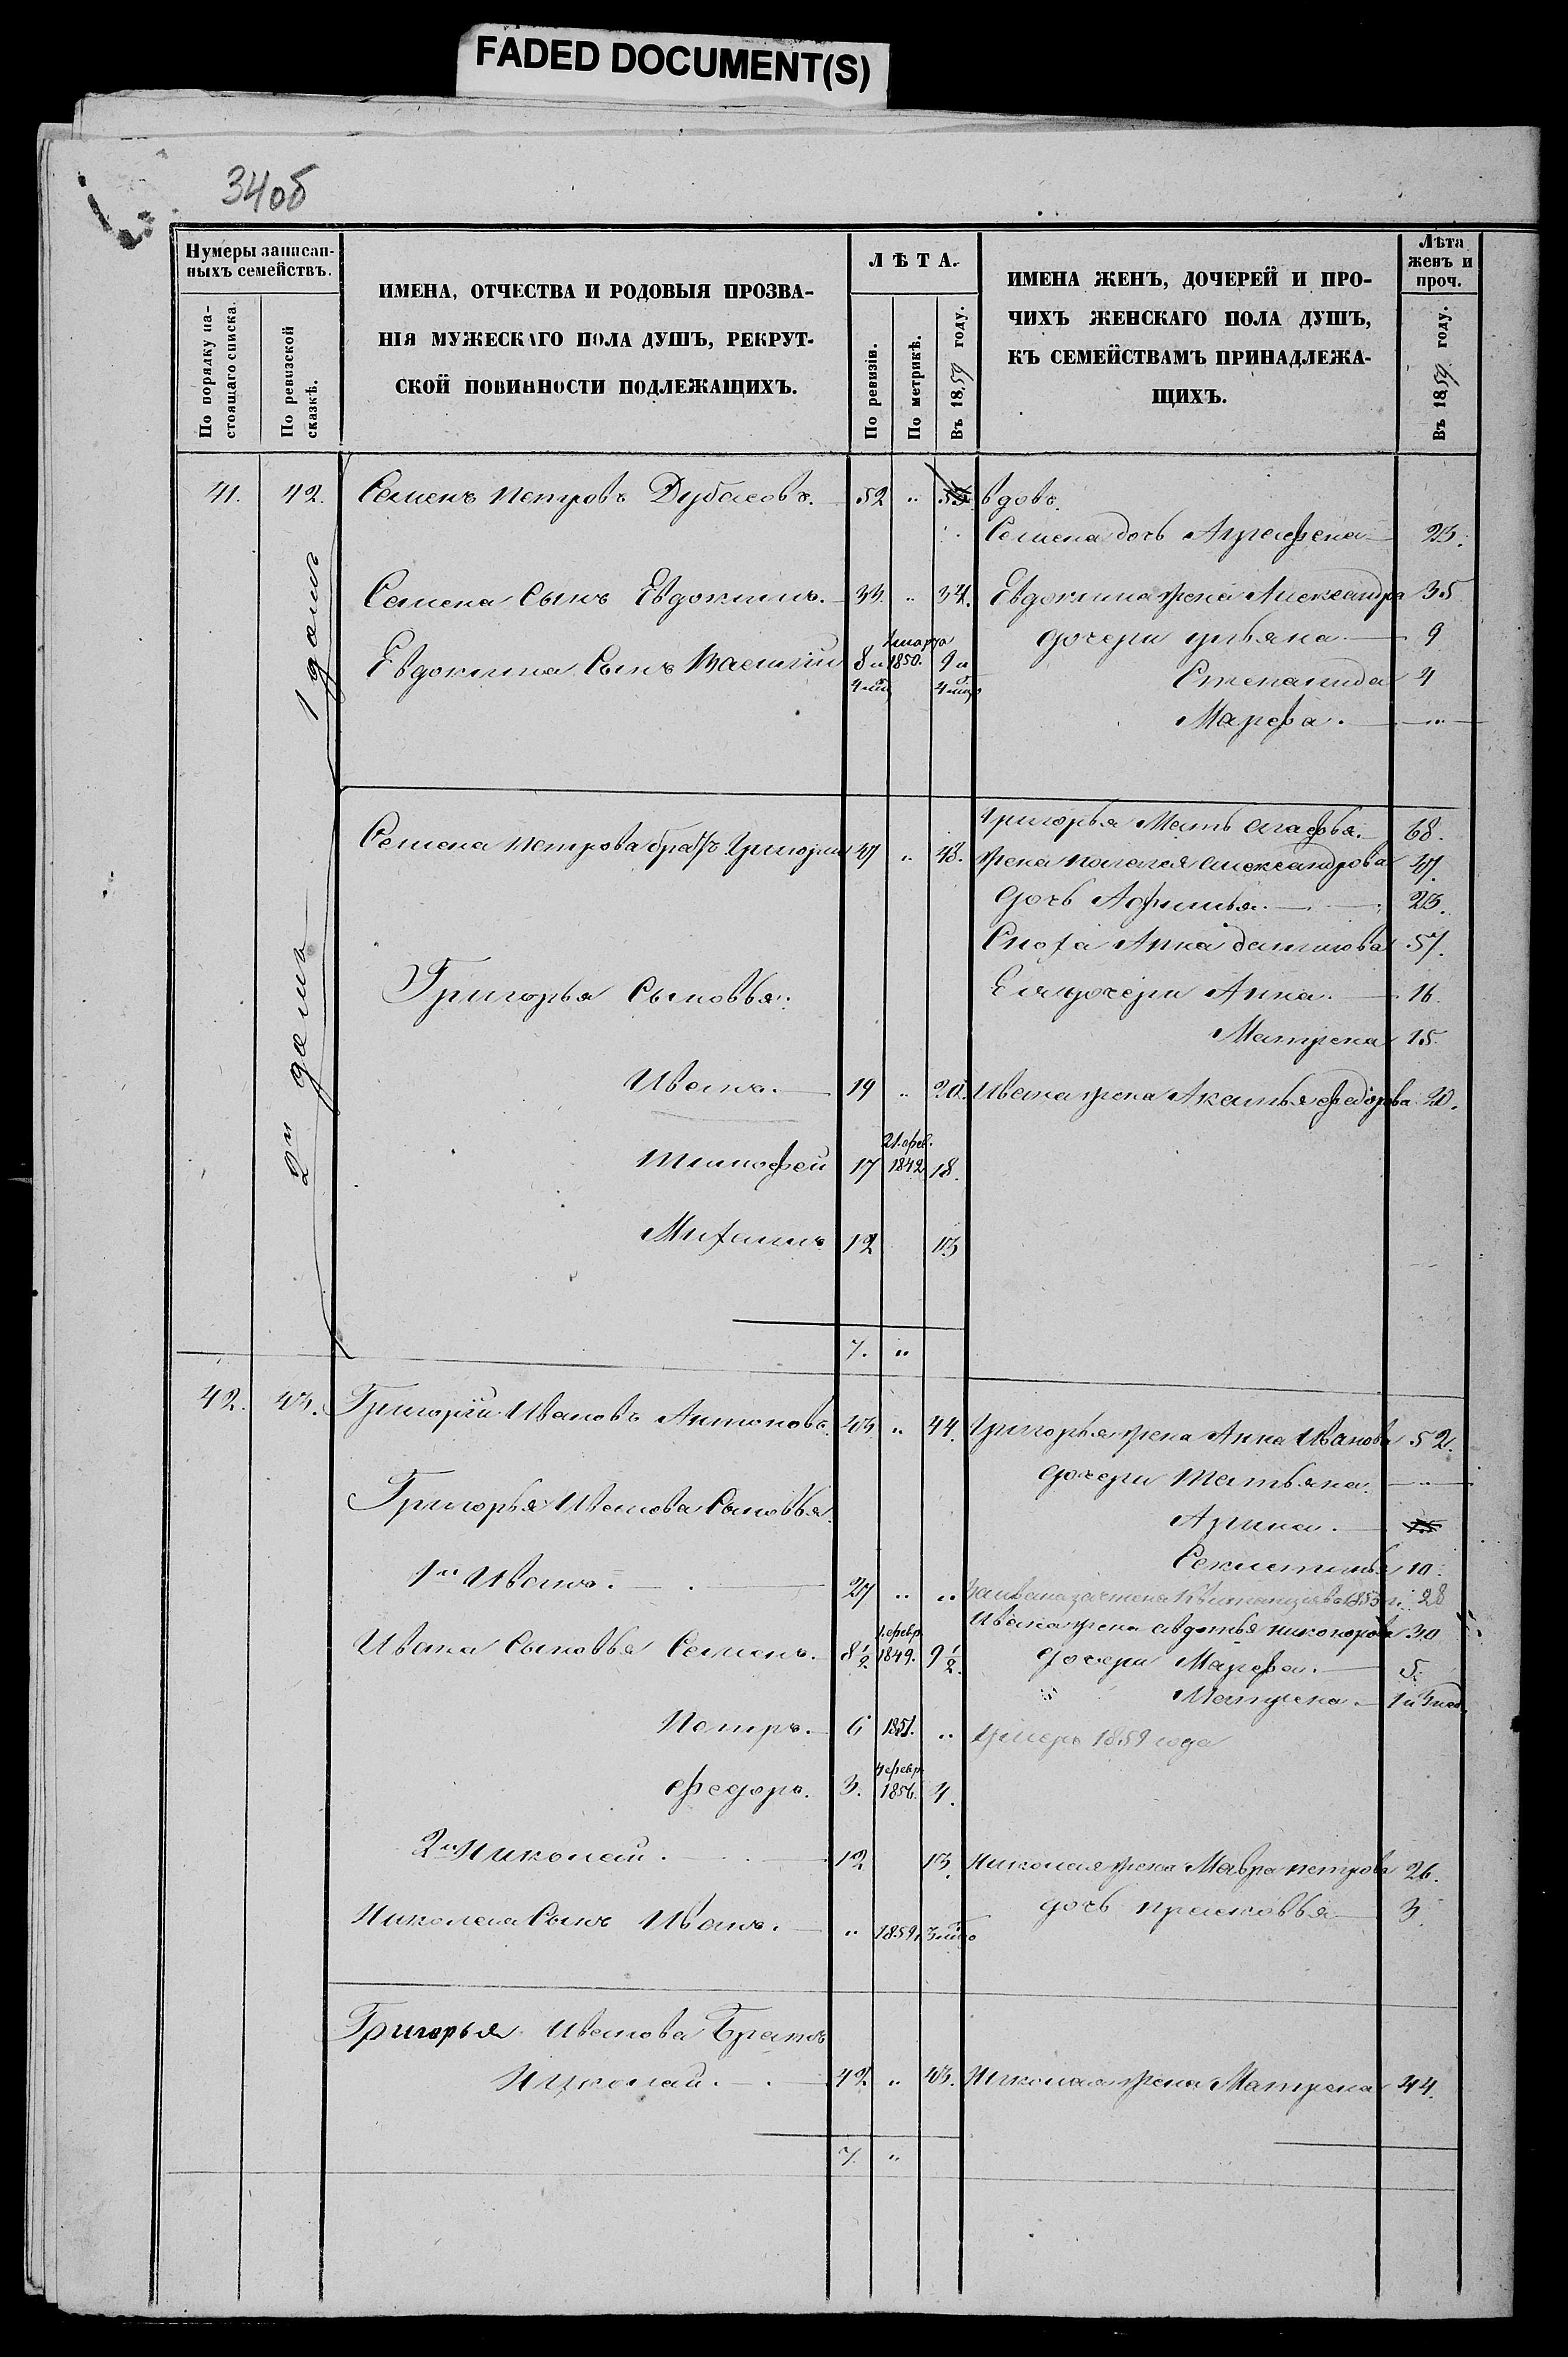 FADED DOCUMENT(S)
34об
Нумеры записан-
ныхъ семействъ.
По порядку на-
стоящаго списка.
По ревизской
сказкѣ.
ИМЕНА, ОТЧЕСТВА И РОДОВЫЯ ПРОЗВА-
НІЯ МУЖЕСКАГО ПОЛА ДУШЪ, РЕКРУТ-
СКОЙ ПОВИННОСТИ ПОДЛЕЖАЩИХЪ.
ЛѢТА.
По ревизіи.
По метрикѣ.
Въ 1859 году.
ИМЕНА ЖЕНЪ, ДОЧЕРЕЙ И ПРО-
ЧИХЪ ЖЕНСКАГО ПОЛА ДУШЪ,
КЪ СЕМЕЙСТВАМЪ ПРИНАДЛЕЖА-
ЩИХЪ.
Лѣта
женъ и
проч.
Въ 1859 году.
41. 42. Семенъ Петровъ Дубасовъ. 52 " 53 вдовъ.
Семена дочь Аграфена 23.
1 домъ
Семена Сынъ Евдокимъ. 33. " 34. Евдокима жена Александра 35
дочери Ульяна 9
Евдокима Сынъ Василий 8 и 4 мѣс 1 марта 1850. 9 и 4 мѣс
Степанида 4
Марфа. "
Григорья Мать Агафья. 68.
Семена Петрова братъ Григорий 47 " 48. жена Палагея Александрова 47.
дочь Афимья. 23.
Сноха Анна Данилова 57.
Григорья Сыновья: Ея дочери Анна. 16.
Матрена 15.
2й домъ
Иванъ. 19 " 20. Ивана жена Акулина Федорова 20.
Тимофей 17 21. фев. 1842 18.
Михаилъ 12 13
7. "
42. 43. Григорий Ивановъ Антоновъ. 43. " 44. Григорья жена Анна Иванова 52.
дочери Татьяна. "
Григорья Иванова Сыновья.
Арина. 15
Секлетинья 10.
1й Иванъ. 27 " " 28
Ивана жена Авдотья Никонорова 30
Ивана Сыновья Семенъ. 8 1/2 1. февр. 1849. 9 1/2.
дочери Марфа. 5.
Матрена.
Петръ. 6 1851. " умеръ 1859 года
Федоръ. 3. 4 февр. 1856. 4.
2й Николай. 12 13. Николая жена Мавра Петрова 26.
дочь Прасковья 3.
Николая Сынъ Иванъ. " 1859 3 мѣс
Григорья Иванова Братъ
Николай. 42 " 43. Николая жена Матрена 44.
7. "